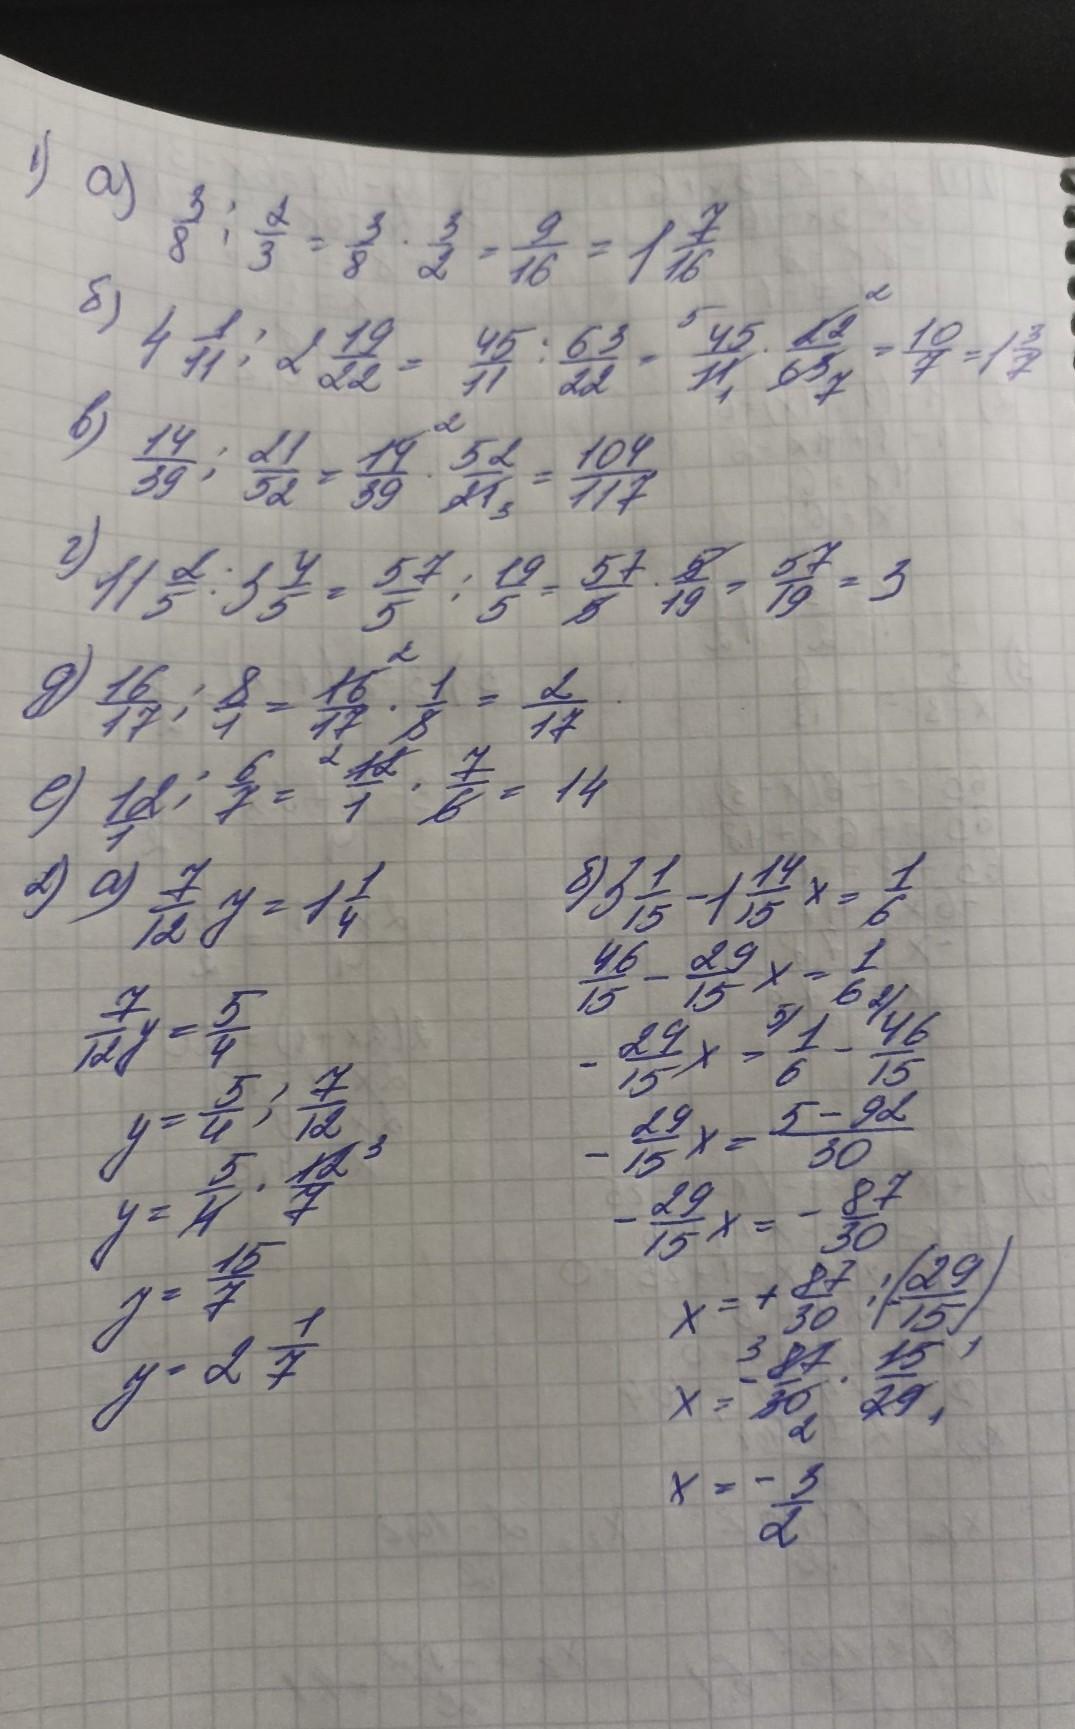 1) а) 3/8 : 2/3 = 3/8 · 3/2 = 9/16 = 1 7/16
б) 4 1/11 : 2 19/22 = 45/11 : 63/22 = 5 45/11 1 · 22/63 2 7 = 10/7 = 1 3/7
в) 14/39 : 21/52 = 14/39 2 · 52/21 3 = 104/117
г) 11 2/5 : 3 4/5 = 57/5 : 19/5 = 57/5 · 5/19 = 57/19 = 3
д) 16/17 : 8/1 = 16/17 2 · 1/8 = 2/17
е) 12/1 : 6/7 = 2 12/1 · 7/6 = 14
2) а) 7/12 y = 1 1/4
7/12 y = 5/4
y = 5/4 : 7/12
y = 5/4 · 12/7 3
y = 15/7
y = 2 1/7
б) 3 1/15 - 1 14/15 x = 1/6
46/15 - 29/15 x = 1/6
- 29/15 x = 5/ 1/6 - 2/ 46/15
- 29/15 x = 5 - 92/30
- 29/15 x = - 87/30
x = + 87/30 : (- 29/15)
x = - 3 87/30 2 · 15/29 1 1
x = - 3/2